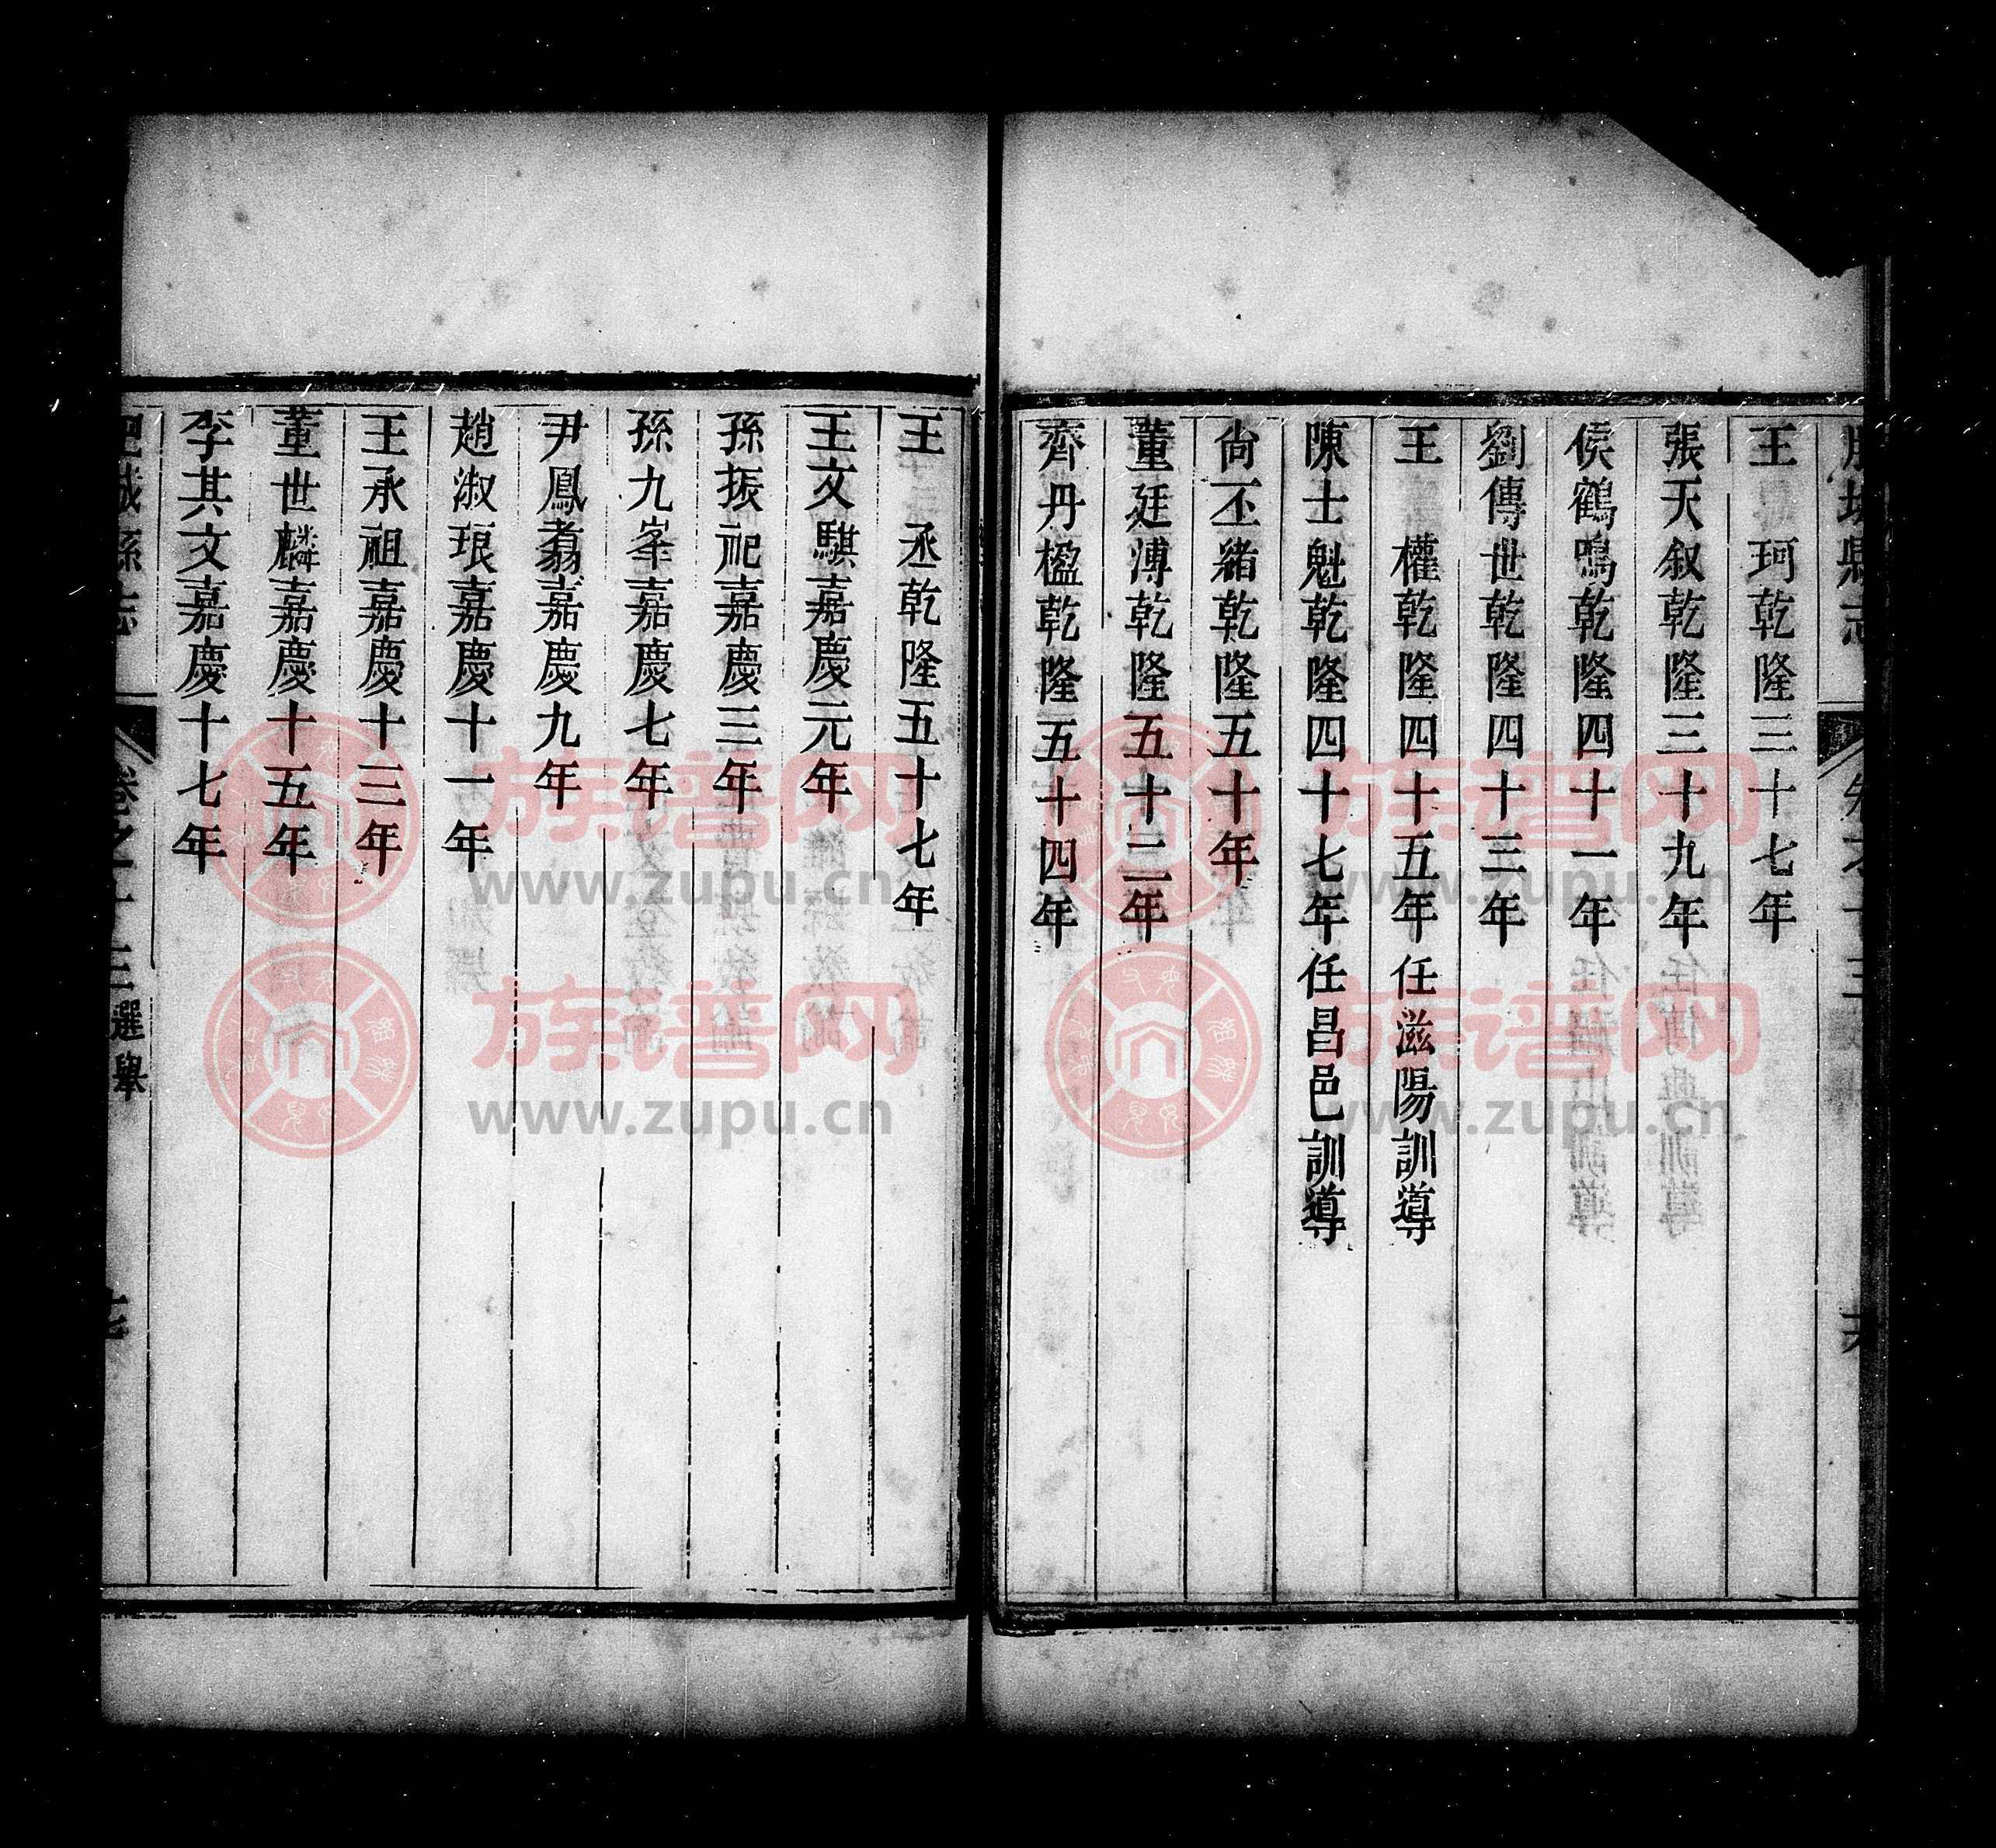 肥城縣志
卷之十三
王　珂乾隆三十七年
張天叙乾隆三十九年
侯鶴鳴乾隆四十一年
劉傳世乾隆四十三年
王　權乾隆四十五年任滋陽訓導
陳士魁乾隆四十七年任昌邑訓導
尙丕緒乾隆五十年
董廷溥乾隆五十二年
齊丹楹乾隆五十四年
王　丞乾隆五十七年
王文騏嘉慶元年
孫振祀嘉慶三年
孫九峯嘉慶七年
尹鳳翥嘉慶九年
趙淑琅嘉慶十一年
王承祖嘉慶十三年
董世麟嘉慶十五年
李其文嘉慶十七年
肥城縣志
卷之十三選舉
族谱网
www.zupu.cn
族谱网
www.zupu.cn
族谱网
www.zupu.cn
族谱网
www.zupu.cn